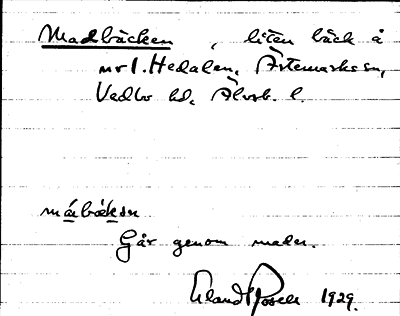 Madbäcken, liten bäck å
nr 1. Hedalen, Ärtemarks sn,
Vedbo hd, Älvsb. l.
mábäkən
Går genom mader.
Erland Rosell 1929.